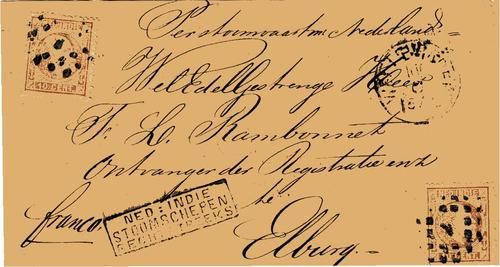 Per stoomvaartm. Nederland
WelEdelGestrenge Heer
F. L. Rambonnet
Ontvanger der Registratie enz
te
Elburg.
franco
NED: INDIE
STOOMSCHEPEN
RECHTSTREEKS
10 CENT